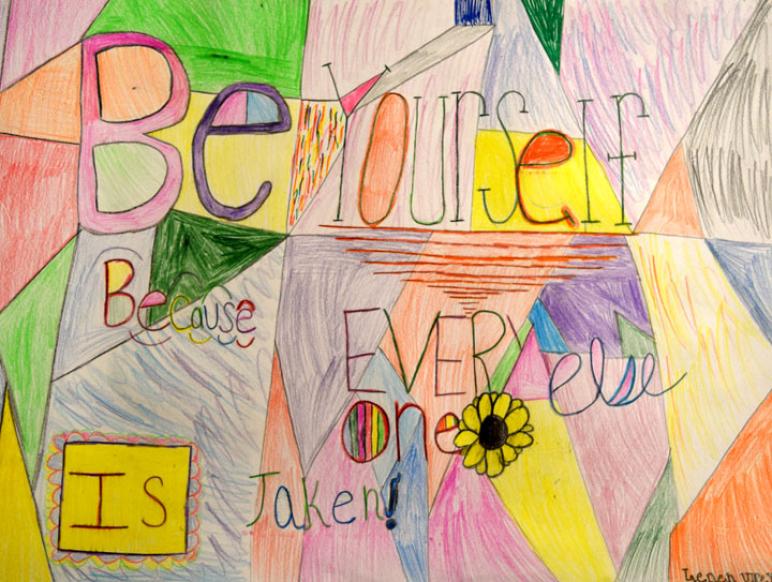 Be Yourself
Because
EVERY
one else
Is Taken!